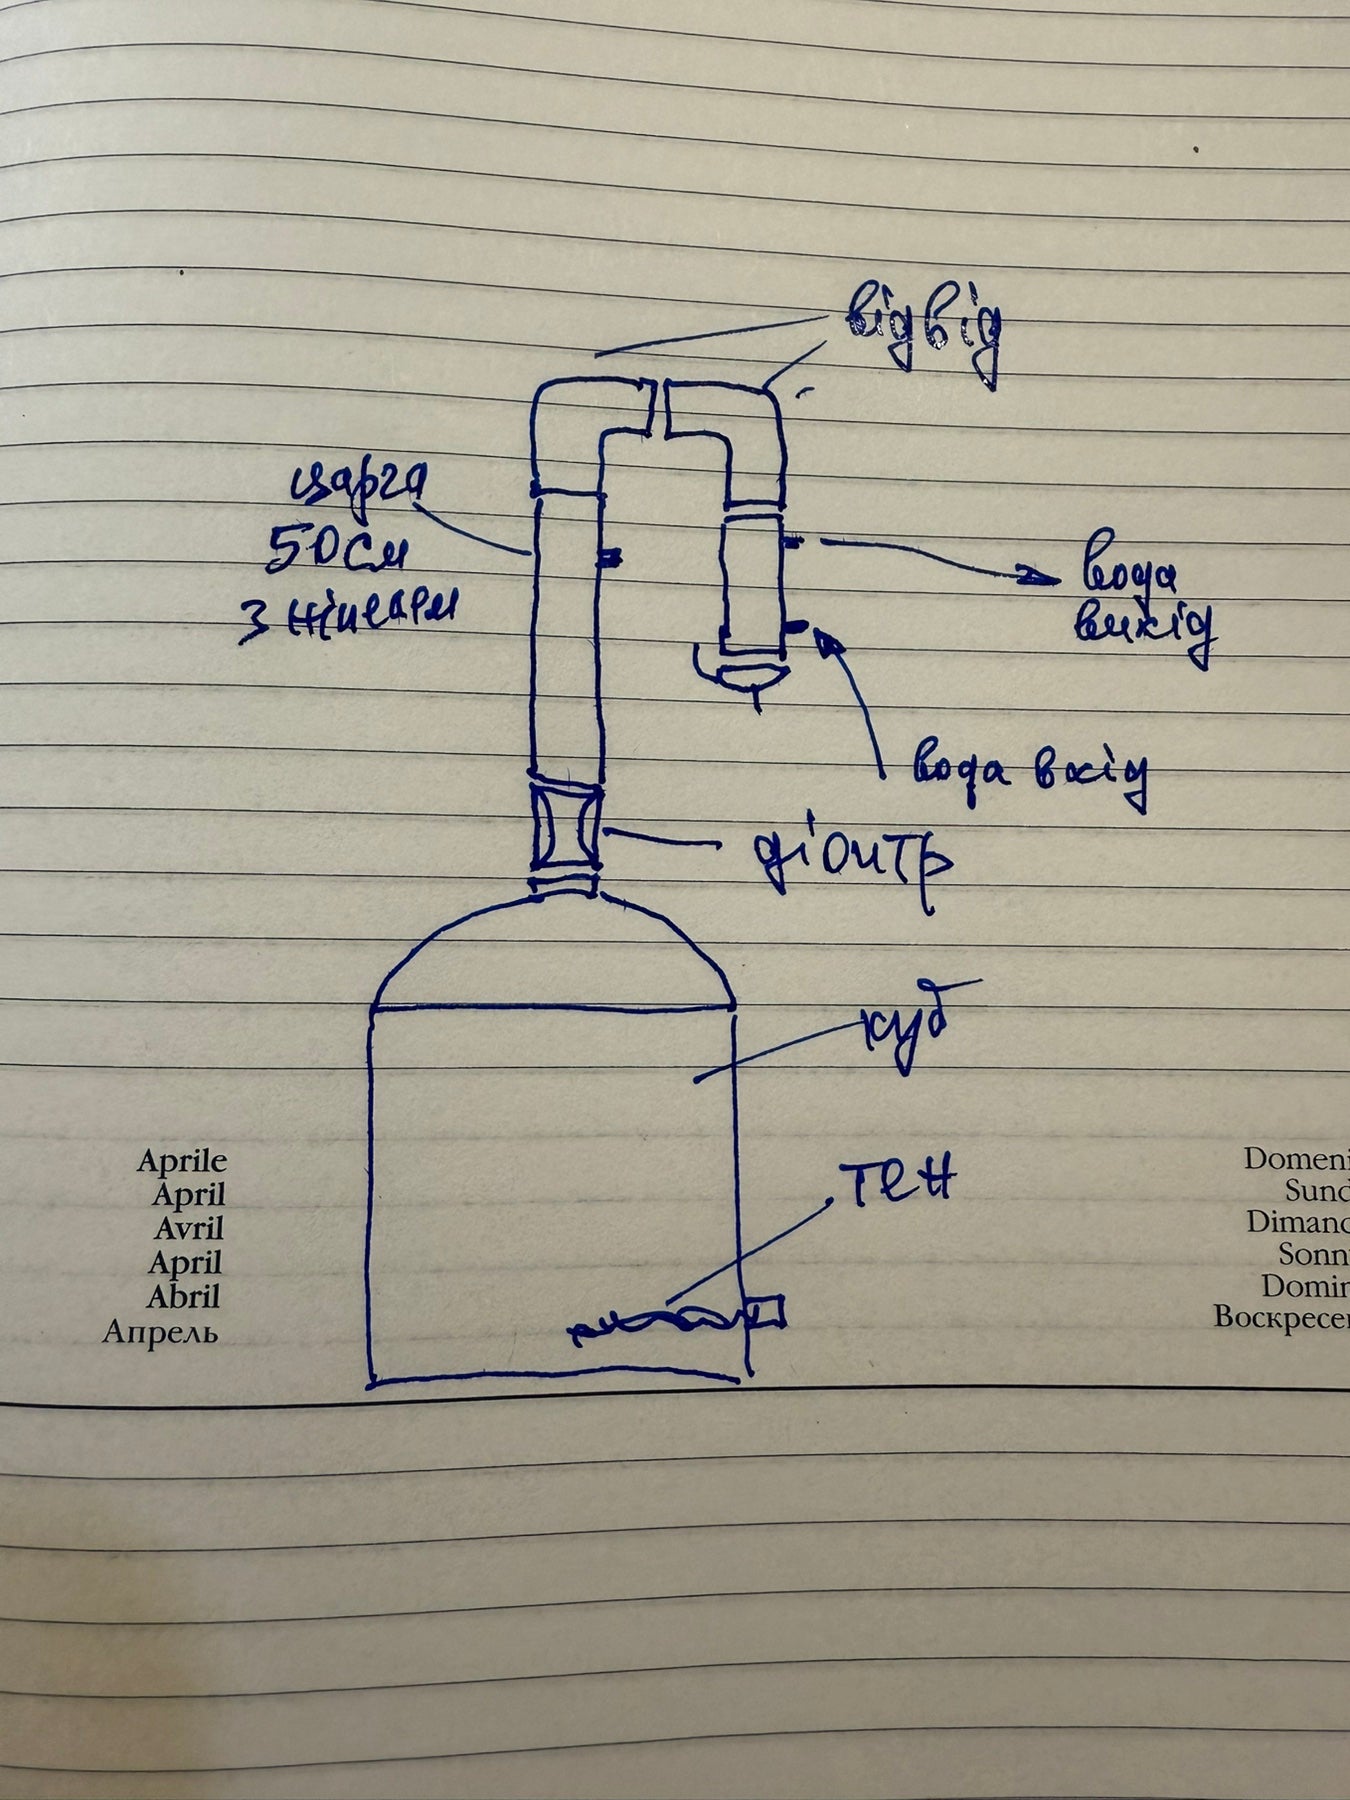 відвід
царга
50см
з ніпелем
вода
вихід
вода вхід
діоптр
куб
тен
Aprile
April
Avril
April
Abril
Апрель
Domeni
Sund
Dimanc
Sonn
Domin
Воскресен